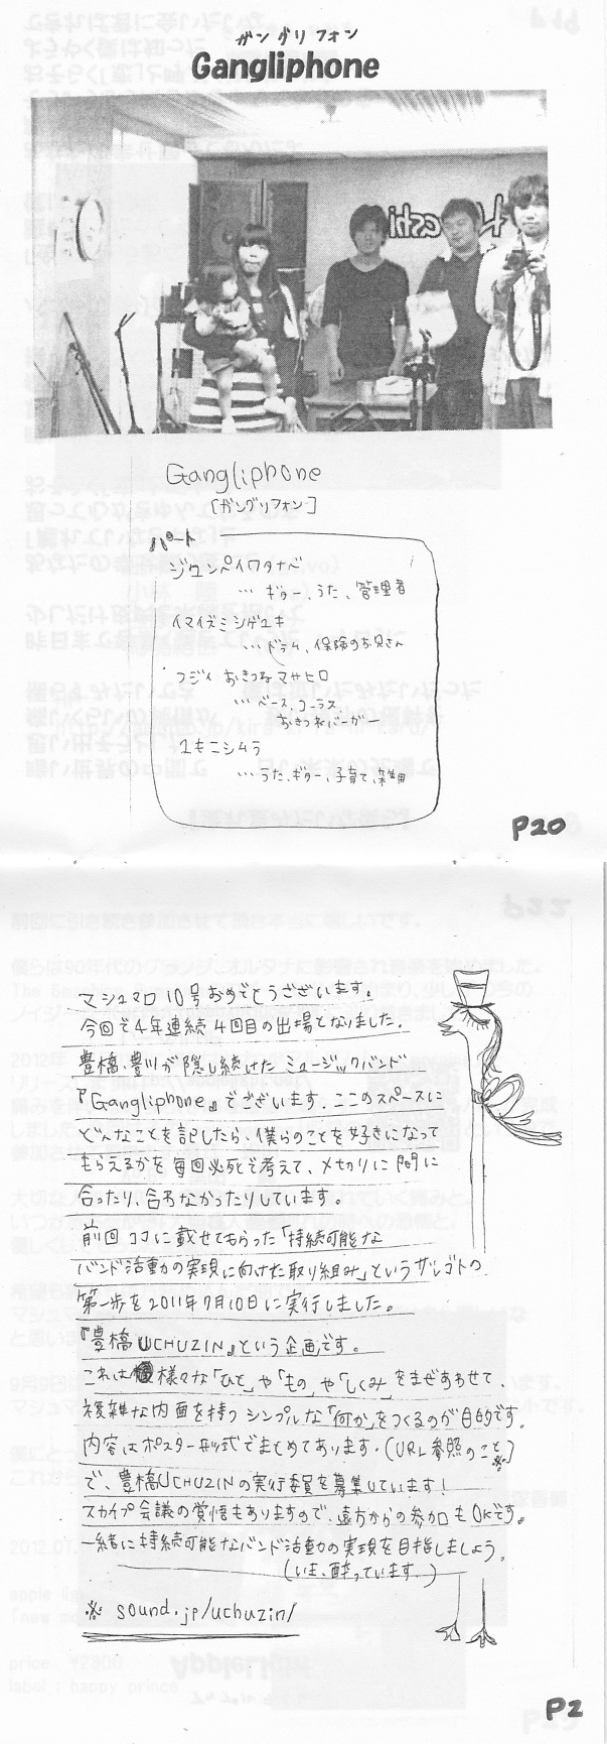 ガングリフォン
Gangliphone
Gangliphone
[ガングリフォン]
パート
ジュンペイワタナベ
… ギター、うた、管理者
イマイズミシゲユキ
… ドラム、保険のお兄さん
フジイ おきつねマサヒロ
… ベース、コーラス、
おきつねバーガー
ユキニシムラ
… うた、ギター、子育て、雑用
P20
マシュマロ10号おめでとうございます。
今回で4年連続4回目の出場となりました。
豊橋、豊川が隠し続けた ミュージックバンド
『Gangliphone』でございます。ここのスペースに
どんなことを記したら、僕らのことを好きになって
もらえるかを毎回必死で考えて、〆切りに間に
合ったり、合わなかったりしています。
前回ココに載せてもらった「持続可能な
バンド活動の実現に向けた取り組み」というザレゴトの
第一歩を2011年7月10日に実行しました。
『豊橋UCHUZIN』という企画です。
これは 様々な「ひと」や「もの」や「しくみ」をまぜあわせて、
複雑な内面を持つ シンプルな「何か」をつくるのが目的です。
内容はポスター形式でまとめてあります。(URL参照のこと※)
で、豊橋UCHUZINの実行委員を募集しています!
スカイプ会議の覚悟もありますので、遠方からの参加もOKです。
一緒に持続可能なバンド活動の実現を目指しましょう。
(いま、酔っています。)
※ sound.jp/uchuzin/
P2